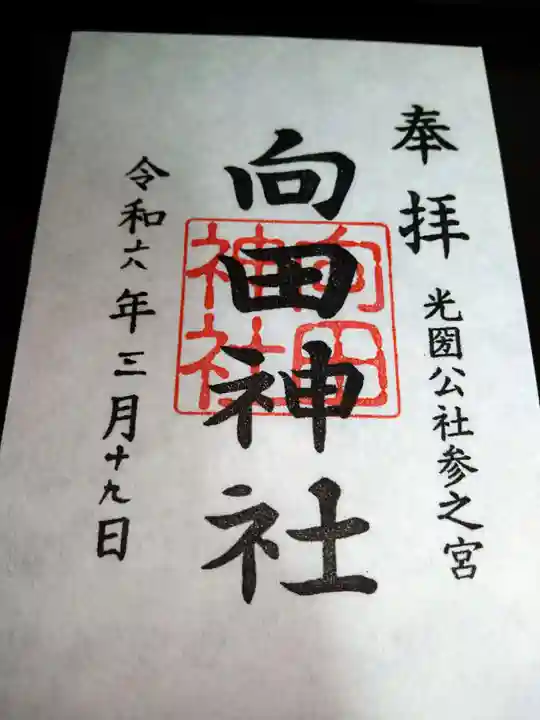 奉拝
光圀公社参之宮
向田神社
向田神社
令和六年三月十九日